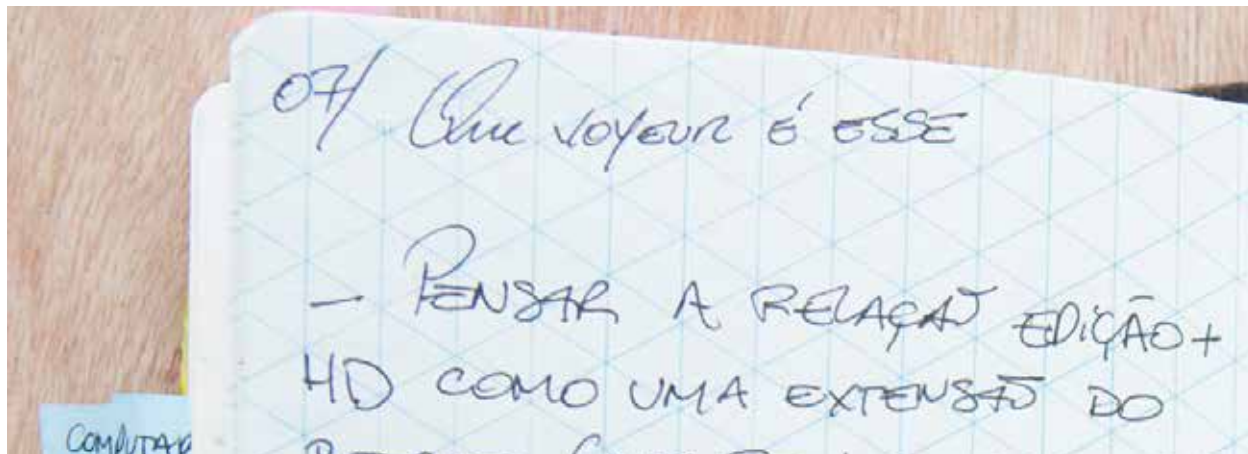 07/ Que voyeur é esse
- Pensar a relação edição+
HD como uma extensão do